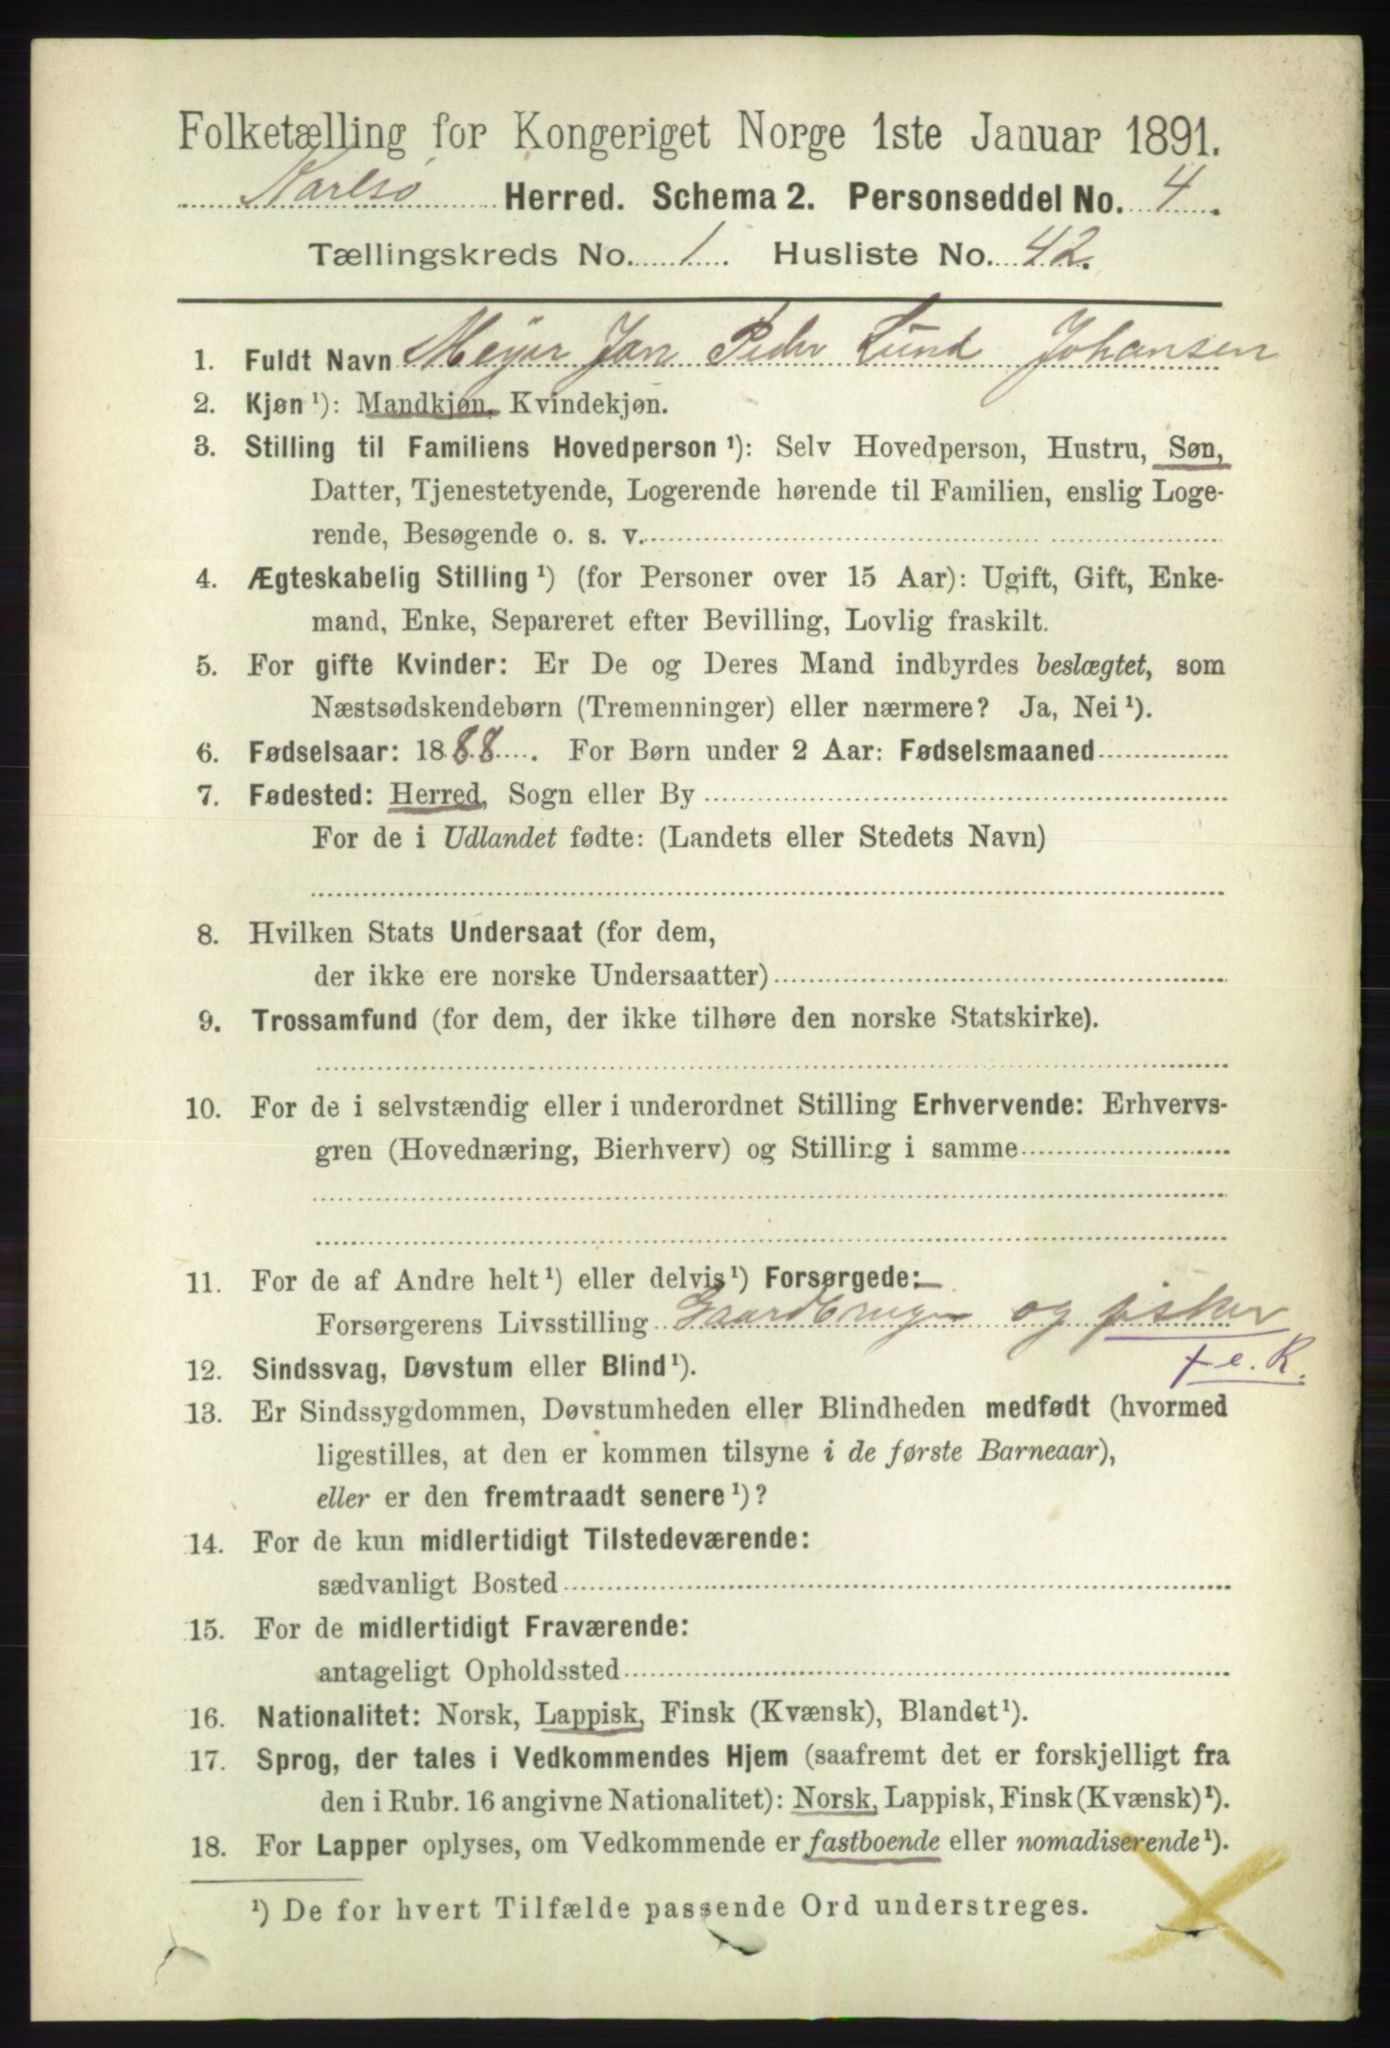 Folketælling for Kongeriget Norge 1ste Januar 1891.
Karlsø Herred. Schema 2. Personseddel No. 4.
Tællingskreds No. 1. Husliste No. 42.
1. Fuldt Navn Meyer Jan Peder Lund Johansen
2. Kjøn ¹): Mandkjøn, Kvindekjøn.
3. Stilling til Familiens Hovedperson ¹): Selv Hovedperson, Hustru, Søn,
Datter, Tjenestetyende, Logerende hørende til Familien, enslig Loge-
rende, Besøgende o. s. v.
4. Ægteskabelig Stilling ¹) (for Personer over 15 Aar): Ugift, Gift, Enke-
mand, Enke, Separeret efter Bevilling, Lovlig fraskilt.
5. For gifte Kvinder: Er De og Deres Mand indbyrdes beslægtet, som
Næstsødskendebørn (Tremenninger) eller nærmere? Ja, Nei ¹).
6. Fødselsaar: 1888. For Børn under 2 Aar: Fødselsmaaned
7. Fødested: Herred, Sogn eller By
For de i Udlandet fødte: (Landets eller Stedets Navn)
8. Hvilken Stats Undersaat (for dem,
der ikke ere norske Undersaatter)
9. Trossamfund (for dem, der ikke tilhøre den norske Statskirke).
10. For de i selvstændig eller i underordnet Stilling Erhvervende: Erhvervs-
gren (Hovednæring, Bierhverv) og Stilling i samme
11. For de af Andre helt ¹) eller delvis ¹) Forsørgede:
Forsørgerens Livsstilling Gaardbruger og fisker
+ e. R.
12. Sindssvag, Døvstum eller Blind ¹).
13. Er Sindssygdommen, Døvstumheden eller Blindheden medfødt (hvormed
ligestilles, at den er kommen tilsyne i de første Barneaar),
eller er den fremtraadt senere ¹)?
14. For de kun midlertidigt Tilstedeværende:
sædvanligt Bosted
15. For de midlertidigt Fraværende:
antageligt Opholdssted
16. Nationalitet: Norsk, Lappisk, Finsk (Kvænsk), Blandet ¹).
17. Sprog, der tales i Vedkommendes Hjem (saafremt det er forskjelligt fra
den i Rubr. 16 angivne Nationalitet): Norsk, Lappisk, Finsk (Kvænsk) ¹).
18. For Lapper oplyses, om Vedkommende er fastboende eller nomadiserende ¹).
¹) De for hvert Tilfælde passende Ord understreges.